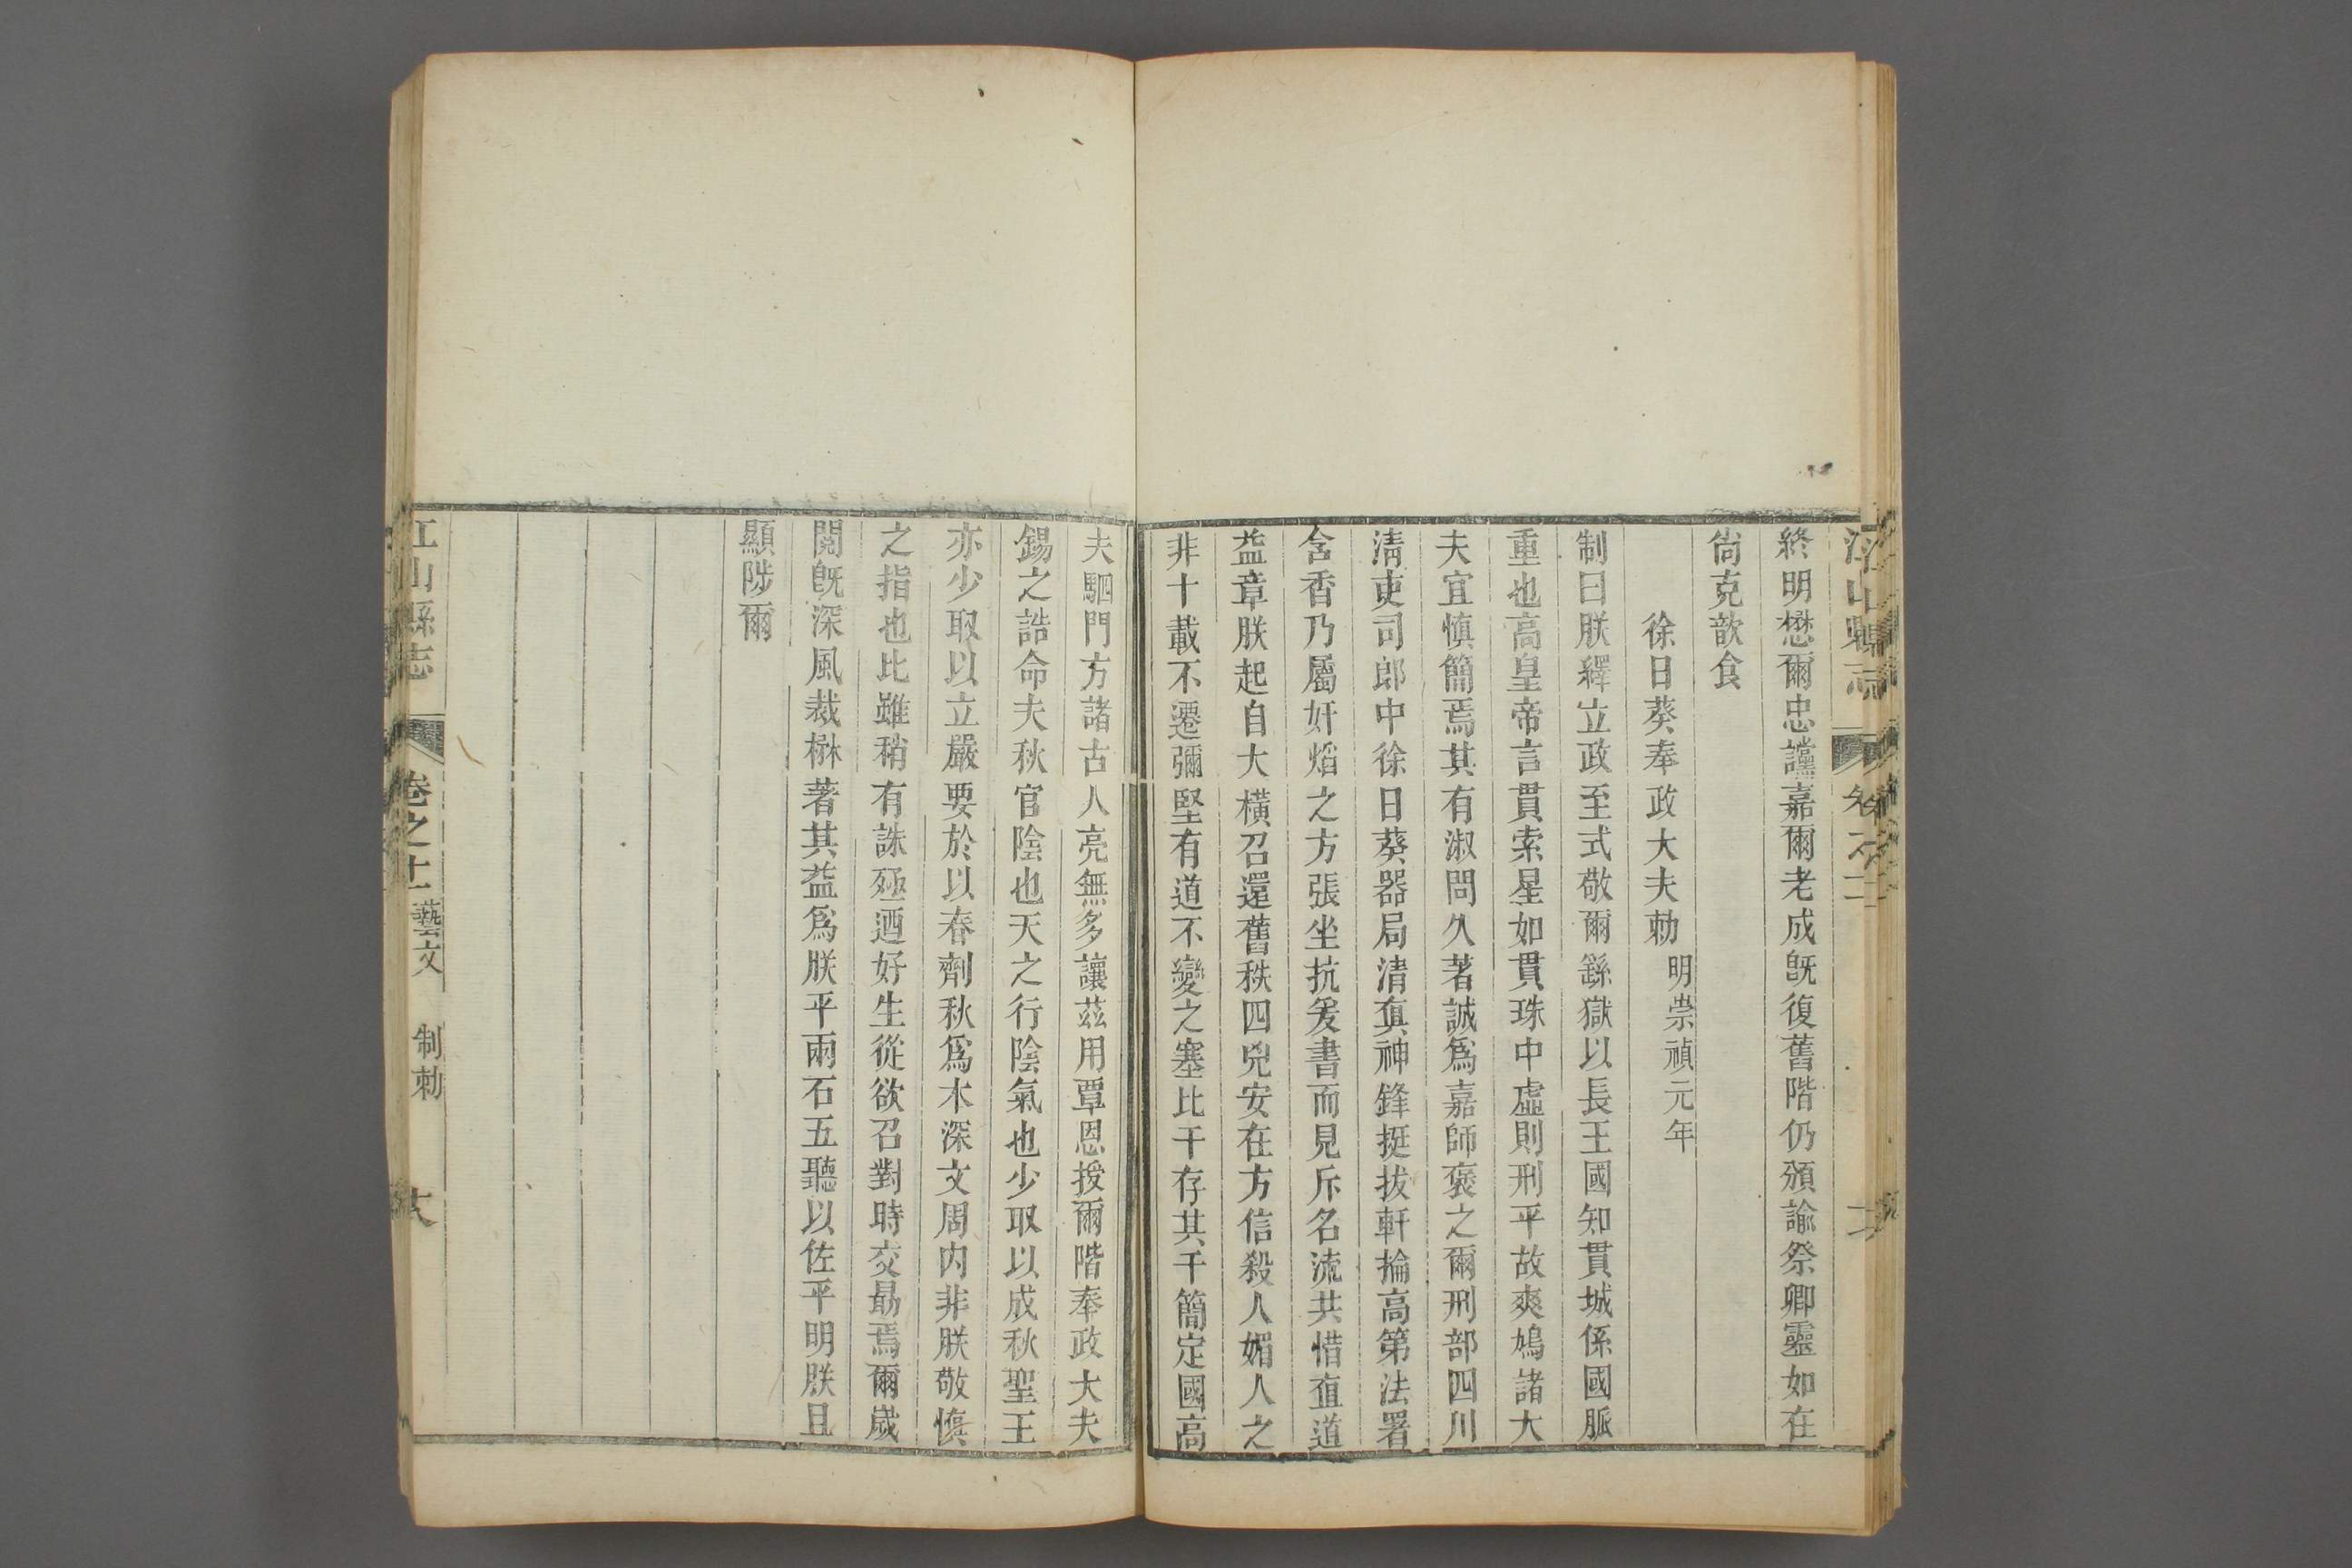 終明懋爾忠讜嘉爾老成旣復舊階仍頒諭祭卿靈如在
尙克歆食
徐日葵奉政大夫勅 明崇禎元年
制曰朕繹立政至式敬爾繇獄以長王國知貫城係國脈
重也高皇帝言貫索星如貫珠中虛則刑平故爽鳩諸大
夫宜愼簡焉其有淑問久著誠爲嘉師褒之爾刑部四川
淸吏司郞中徐日葵器局淸眞神鋒挺拔軒掄高第法署
含香乃屬奸熖之方張坐抗爰書而見斥名流共惜直道
益章朕起自大橫召還舊秩四兇安在方信殺人媚人之
非十載不遷彌堅有道不變之塞比干存其千簡定國高
夫駟門方諸古人亮無多讓茲用覃恩授爾階奉政大夫
錫之誥命夫秋官陰也天之行陰氣也少取以成秋聖王
亦少取以立嚴要於以春劑秋爲木深文周內非朕敬愼
之指也比雖稍有誅殛迺好生從欲召對時交勗焉爾歲
閱旣深風裁楙著其益爲朕平兩石五聽以佐平明朕且
顯陟爾
江山縣志 卷之十一 藝文 制勅 十八